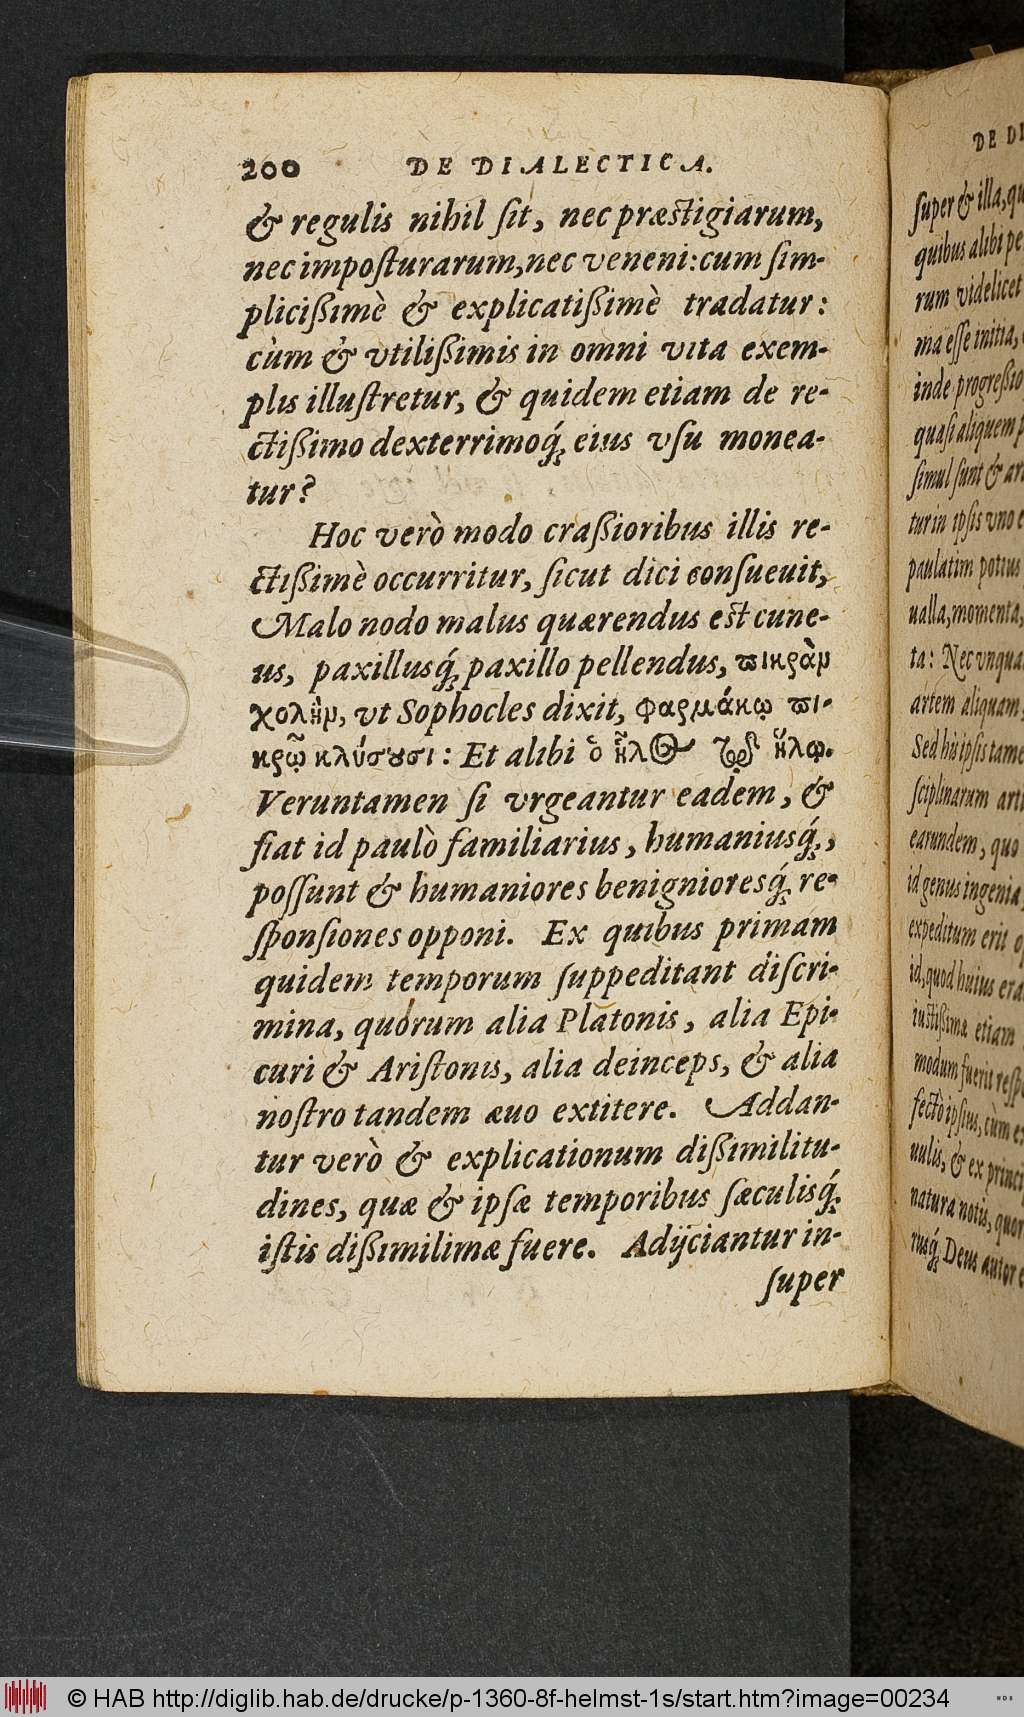 200 DE DIALECTICA.
& regulis nihil ſit, nec præſtigiarum,
nec impoſturarum, nec veneni: cum ſim-
pliciſſimè & explicatiſſimè tradatur:
cùm & vtiliſſimis in omni vita exem-
plis illuſtretur, & quidem etiam de re-
ctiſſimo dexterrimoq́; eius vſu monea-
tur?
Hoc verò modo craſſioribus illis re-
ctiſſimè occurritur, ſicut dici conſueuit,
Malo nodo malus quærendus eſt cune-
us, paxillusq́; paxillo pellendus, πικρὰν
χολὴν, vt Sophocles dixit, φαρμάκῳ πι-
κρῷ κλύσουσι: Et alibi ὁ ἧλος τῷ ἥλῳ.
Veruntamen ſi vrgeantur eadem, &
fiat id paulò familiarius, humaniusq́;,
poſſunt & humaniores benignioresq́; re-
ſponſiones opponi. Ex quibus primam
quidem temporum ſuppeditant diſcri-
mina, quorum alia Platonis, alia Epi-
curi & Ariſtonis, alia deinceps, & alia
noſtro tandem æuo extitere. Addan-
tur verò & explicationum diſſimilitu-
dines, quæ & ipſæ temporibus ſæculisq́;
iſtis diſſimilimæ fuere. Adijciantur in-
ſuper
DE DI
ſuper & illa, qu
quibus alibi pe
rum videlicet
ma eſſe initia,
inde progreſſio
quaſi aliquem p
ſimul ſunt & ar
tur in ipſis vno e
paulatim potius
ualla, momenta,
ta: Nec vnqua
artem aliquam,
Sed his ipſis tame
ſciplinarum arti
earundem, quo
id genus ingenia,
expeditum erit o
id, quod huius era
iuſtiſſima etiam
modum fuerit reſp
fectò ipſius, cùm e
uulis, & ex princi
natura notis, quor
rusq́; Deus autor e
© HAB http://diglib.hab.de/drucke/p-1360-8f-helmst-1s/start.htm?image=00234